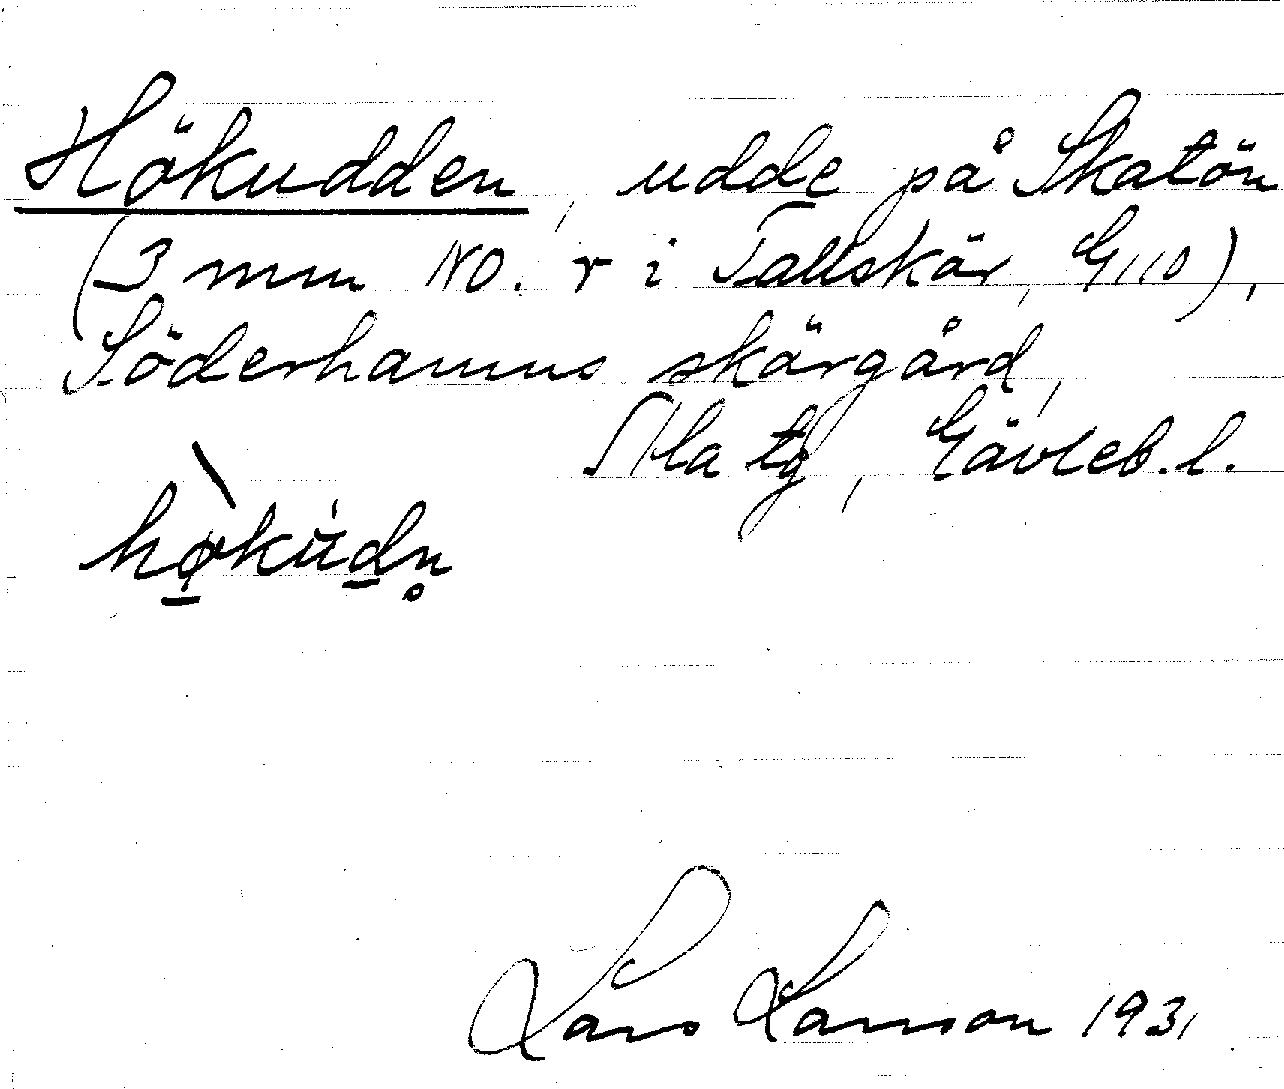 Hökudden, udde på Skatön
(3 mm NO. r i Tallskär, G110),
Söderhamns skärgård,
Ala tg, Gävleb.l.
hø̀kúdn̥
Lars Larsson 1931